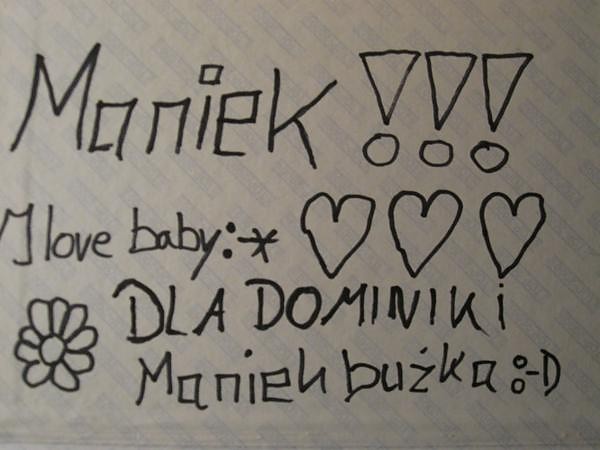 Maniek !!!
I love baby:-*
DLA DOMINIKI
Maniek buźka :-D